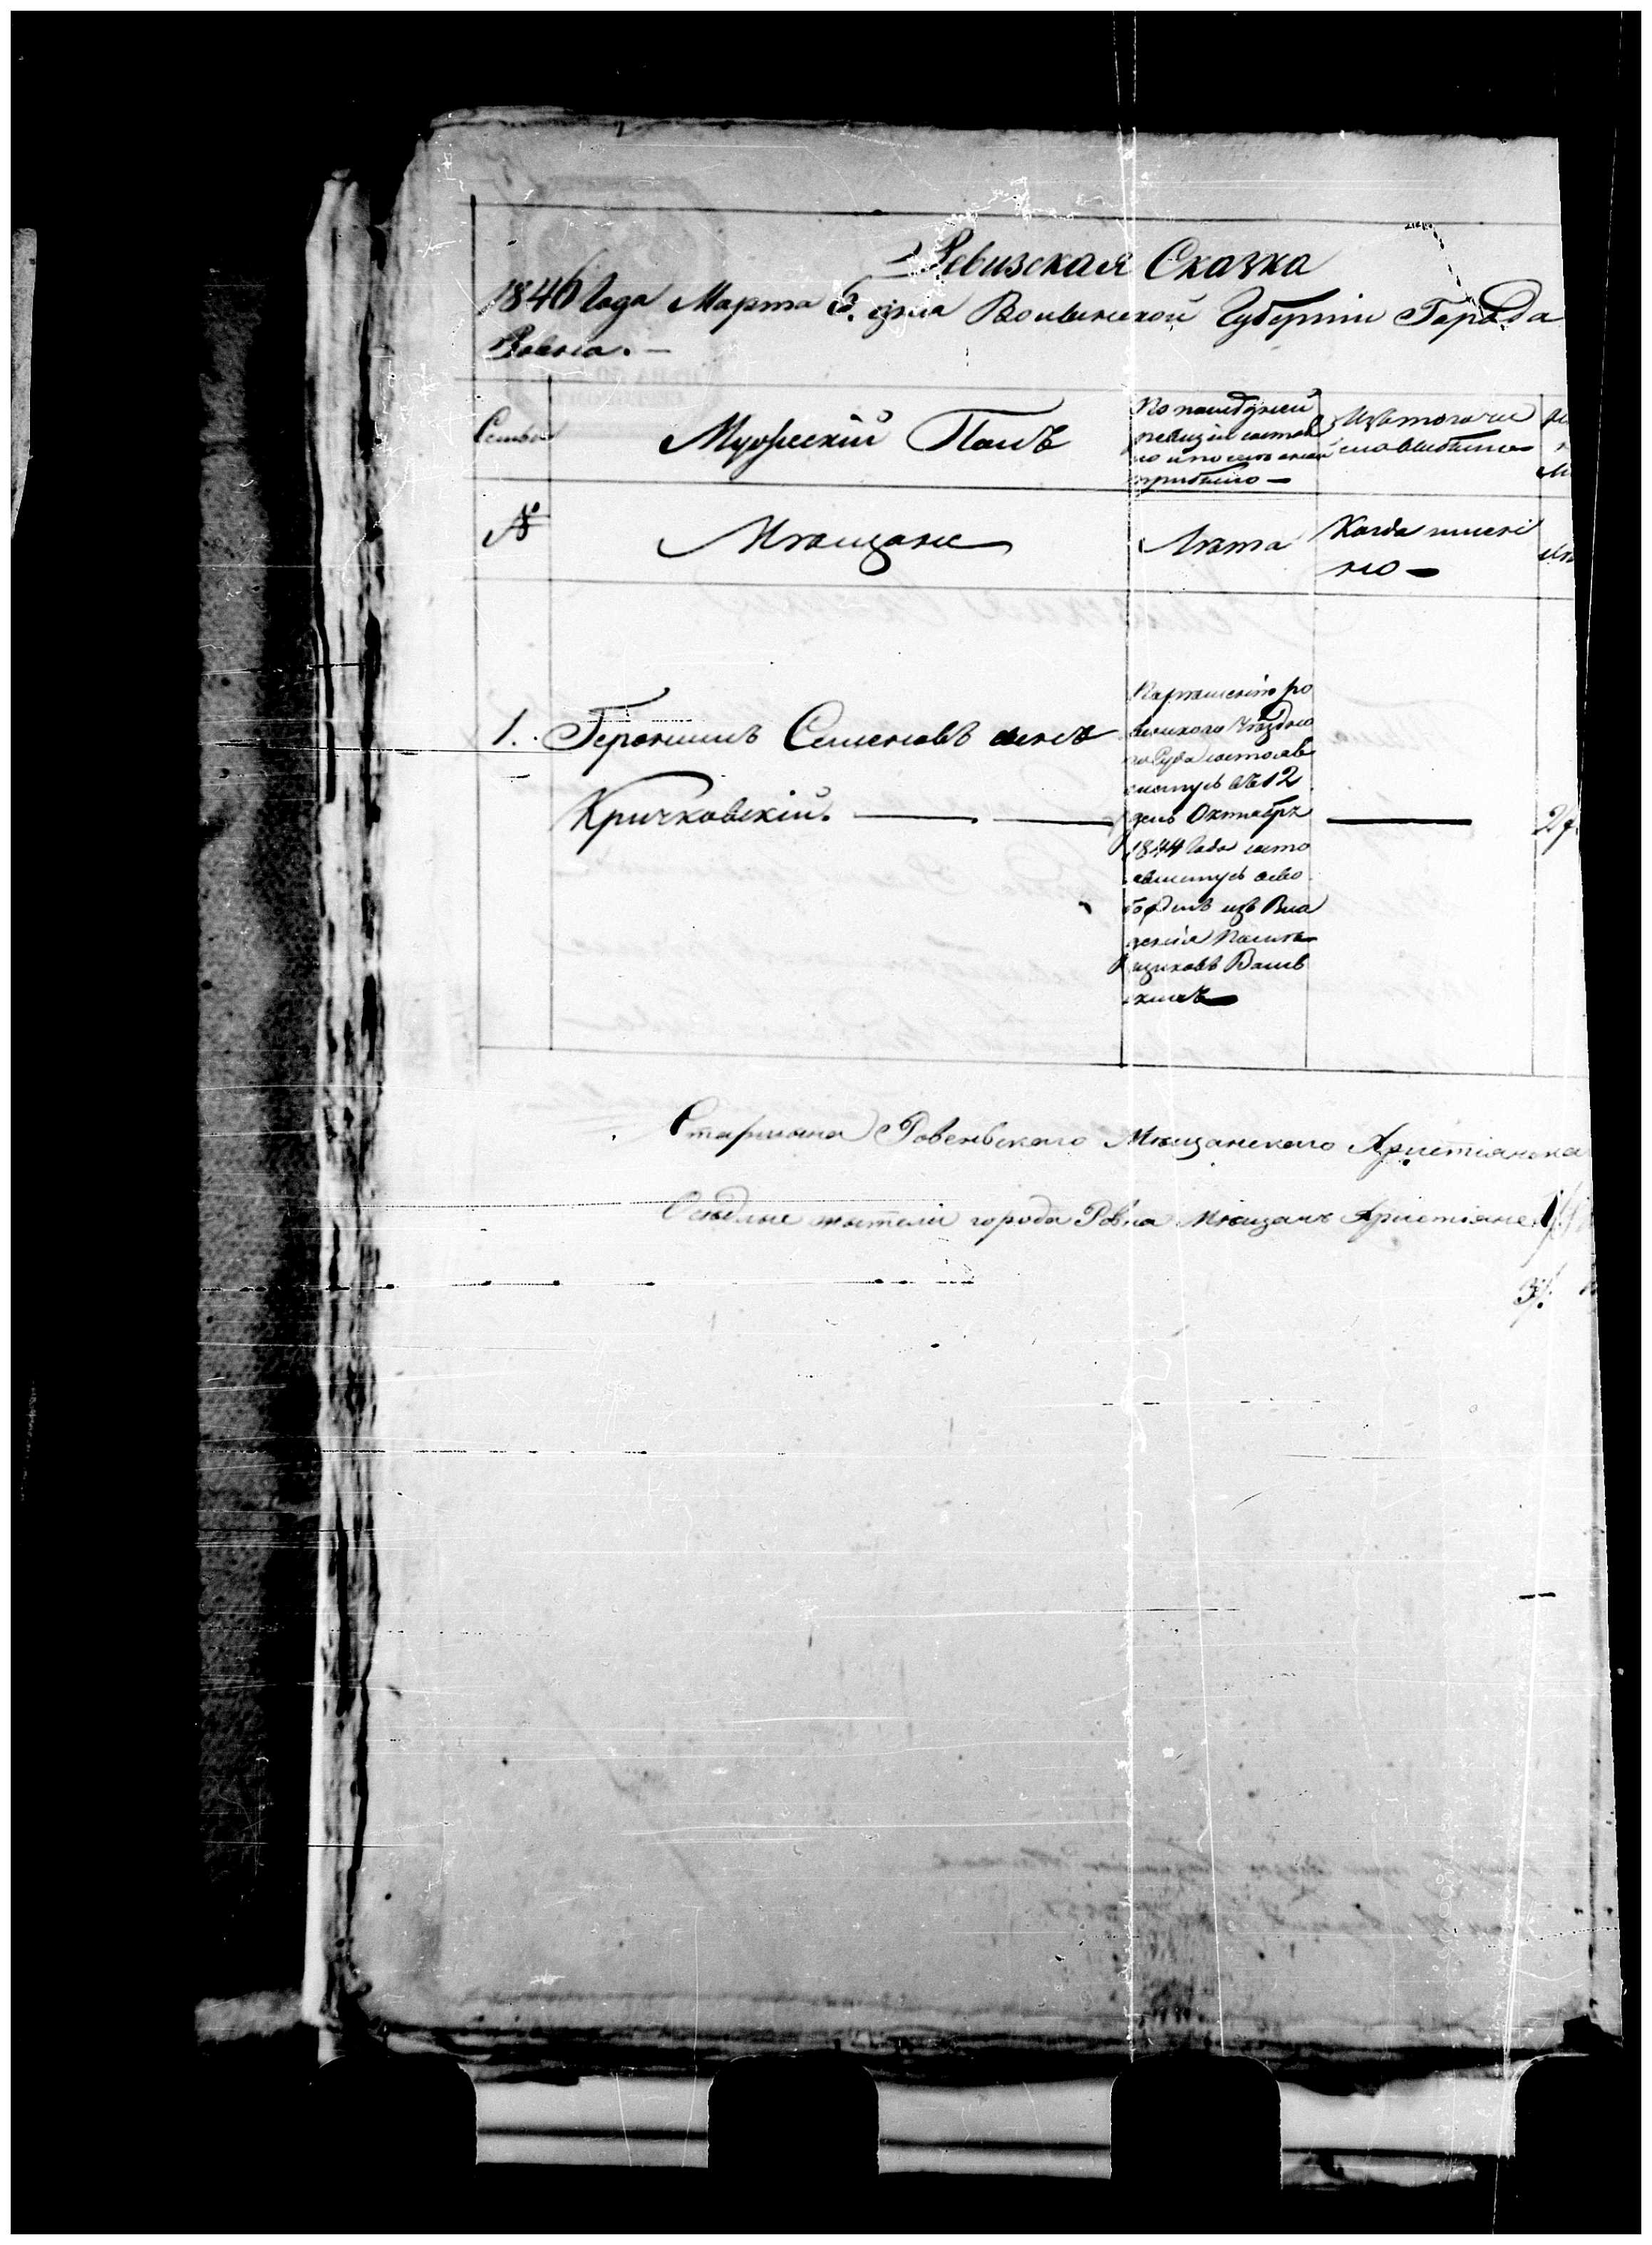 Ревизская Сказка
1846 Года Марта 6. дня Волынской Губерніи Города
Ровна. —
Семьи
Мужескій Полъ
По последней
ревизіи состоя
ло и после оной
прибыло —
Изъ того чи
сла выбыло
№
Мѣщане
Лѣта
Когда имен
но —
1. Геронимъ Семеновъ сынъ
Кричковскій. — —
По решенію ро
венского Уѣздно
го Суда состояв
шемуся въ 12
день Октября
1844 Года состо
явшемуся осво
божденъ изъ Вла
денія Помѣ
щиковъ
—
Старшина Ровенского Мѣщанского Христіянска
Оседлые жители города Ровна Мѣщане Християне 1/.
3/.